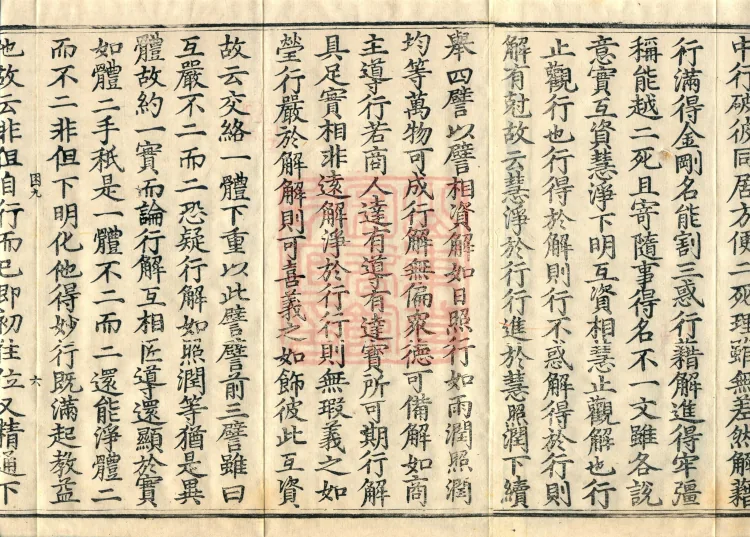 中行破彼同居方便二死理雖無差然解藉
行滿得金剛名能割三惑行藉解進得牢彊
稱能越二死且寄隨事得名不一文雖各說
意實互資慧淨下明互資相慧止觀解也行
止觀行也行得於解則行不惑解得於行則
解有尅故云慧淨於行行進於慧照潤下續
舉四譬以譬相資解如日照行如雨潤照潤
均等萬物可成行解無偏衆德可備解如商
主導行若商人達有導有達寶所可期行解
具足實相非遠解淨於行行則無瑕義之如
瑩行嚴於解解則可喜義之如飾彼此互資
故云交絡一體下重以此譬譬前三譬雖曰
互嚴不二而二恐疑行解如照潤等猶是異
體故約一實而論行解互相匠導還顯於實
如體二手秖是一體不二而二還能淨體二
而不二非但下明化他得妙行既滿起教益
也故云非但自行而已即初住位又精通下
六